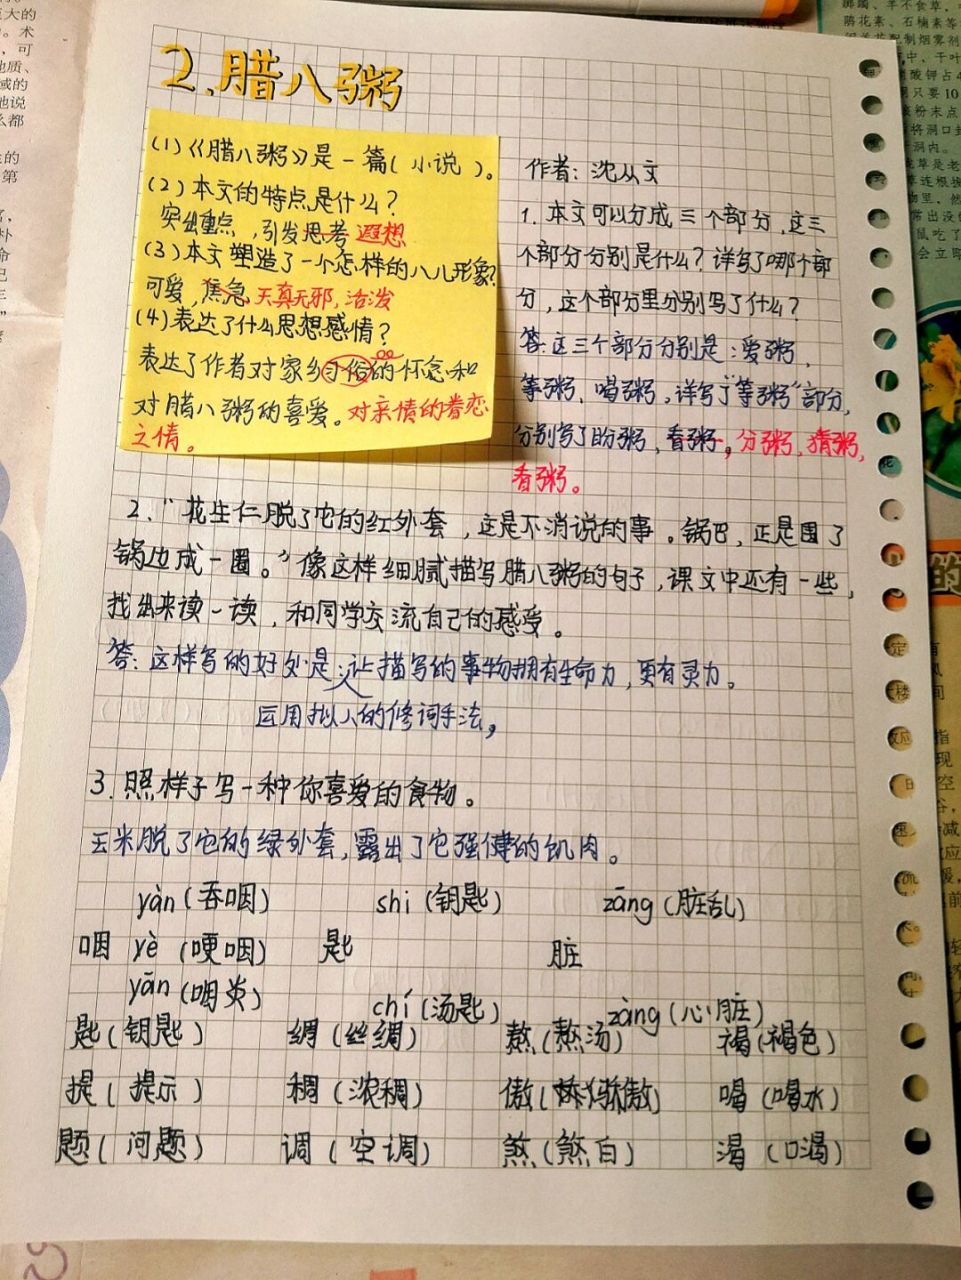 2、腊八粥
(1)《腊八粥》是一篇(小说)。
(2)本文的特点是什么?
突出重点,引发思考 遐想
(3)本文塑造了一个怎样的八儿形象?
可爱,焦急,天真无邪,活泼
(4)表达了什么思想感情?
表达了作者对家乡习俗的怀念和
对腊八粥的喜爱。对亲情的眷恋
之情。
作者:沈从文
1.本文可以分成三个部分,这三
个部分分别是什么?详写了哪个部
分,这个部分里分别写了什么?
答:这三个部分分别是:爱粥,
等粥,喝粥,详写了"等粥"部分,
分别写了盼粥,看粥,分粥,猜粥,
看粥。
2."花生仁脱了它的红外套,这是不消说的事。锅巴,正是围了
锅边成一圈。"像这样细腻描写腊八粥的句子,课文中还有一些,
找出来读一读,和同学交流自己的感受。
答:这样写的好处是:让描写的事物拥有生命力,更有灵力。
运用拟人的修词手法,
3.照样子写一种你喜爱的食物。
玉米脱了它的绿外套,露出了它强健的肌肉。
yàn(吞咽) shi(钥匙) zāng(脏乱)
咽 yè(哽咽) 匙 脏
yān(咽炎) chí(汤匙) zàng(心脏)
匙(钥匙) 绸(丝绸) 熬(熬汤) 褐(褐色)
提(提示) 稠(浓稠) 傲( 傲) 喝(喝水)
题(问题) 调(空调) 煞(煞白) 渴(口渴)